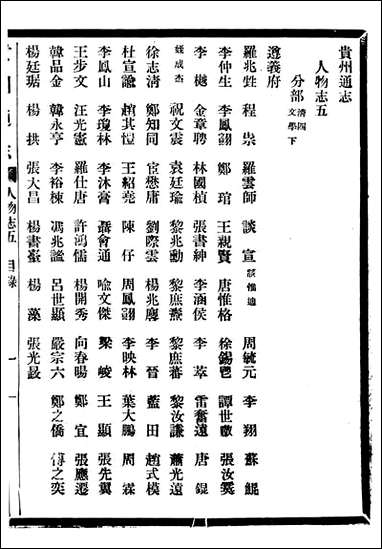 貴州通志
人物志五
分部 清四 文學下
遵義府
羅兆甡 程 祟 羅雲師 談 宣 談惟適 周毓元 李 翔 蘇 鯤
李仲生 李鳳翧 鄭 琯 王親賢 唐惟格 徐錫 譚世 張汝霙
李 樾 金章聘 林國楨 張書紳 李涵侯 李 萃 雷奮遠 唐 錕
錢成杰 祝文震 袁廷瑜 黎兆勳 黎庶燾 黎庶蕃 黎汝謙 蕭光遠
徐志清 鄭知同 宦懋庸 劉際雲 楊兆麐 李 晉 藍 田 趙式模
杜宣諭 趙其愷 王紹堯 陳 仔 周鳳翧 李映林 葉大鵬 周 霖
李鳳山 李瓊林 李沐膏 聶會通 喻文傑 梁 峻 王 顯 張先翼
王步文 汪光憲 羅仕唐 許鴻儒 楊開秀 向春暘 鄭 宜 張應遷
韓品金 韓永亨 李裕棟 馮兆謐 呂世顯 嚴宗六 鄭之僑 傅之奕
楊廷琚 楊 拱 張大昌 楊書臺 楊 藻 張光
人物志五 目錄
一